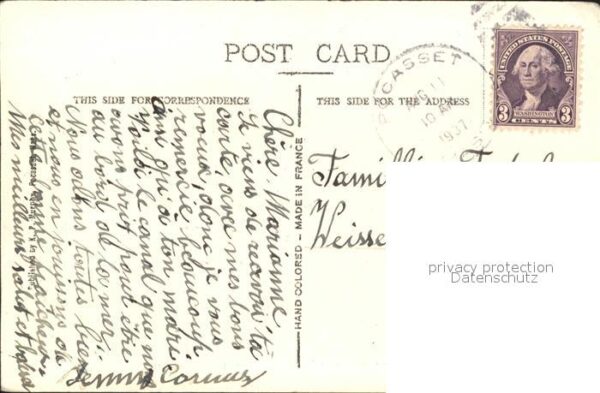 POST CARD
THIS SIDE FOR CORRESPONDENCE
THIS SIDE FOR THE ADDRESS
Chère Marianne
Je viens de recevoir ta
carte, avec mes bons
voeux, donc je vous
remercie beaucoup
ainsi qu'à ton mari
Voilà le canal que nous
avons pris pour être
au bord de la mer.
Nous allons toutes bien
et nous en jouissons de
cette belle fraicheur.
Mes meilleurs
Jenny
HAND COLORED – MADE IN FRANCE
Published by
CASSET
AUG 11
10 AM
1937
UNITED STATES POSTAGE
WASHINGTON
3 CENTS 3
Famille
Weisse
privacy protection
Datenschutz